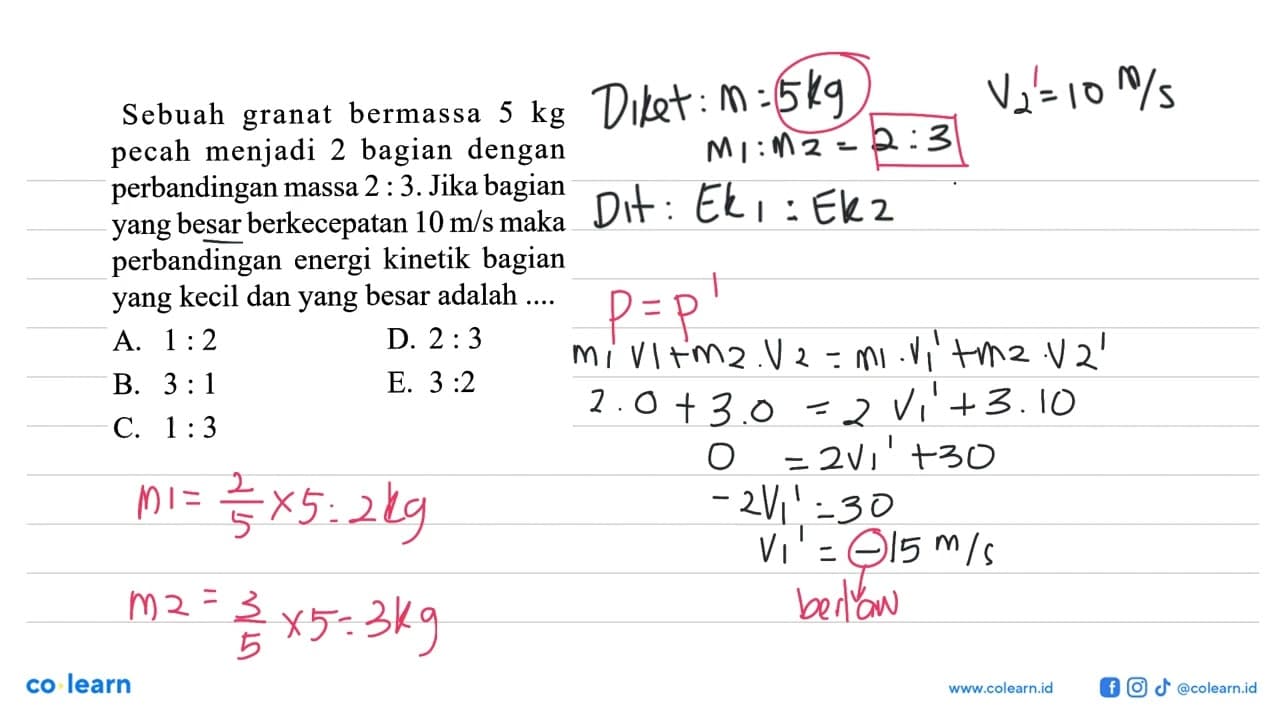 Sebuah granat bermassa 5 kg
pecah menjadi 2 bagian dengan
perbandingan massa 2 : 3. Jika bagian
yang besar berkecepatan 10 m/s maka
perbandingan energi kinetik bagian
yang kecil dan yang besar adalah ....
A. 1 : 2
B. 3 : 1
C. 1 : 3
D. 2 : 3
E. 3 :2
m1 = 2/5 x 5 = 2kg
m2 = 3/5 x 5 = 3kg
Diket : m = 5kg
V2' = 10 m/s
m1 : m2 = 2 : 3
Dit : Ek1 : Ek2
P = P'
m1 V1 + m2 . V2 = m1 . V1' + m2 . V2'
2 . 0 + 3 . 0 = 2 V1' + 3 . 10
0 = 2V1' + 30
-2V1' = 30
V1' = -15 m/s
berlaw
co learn
www.colearn.id
@colearn.id